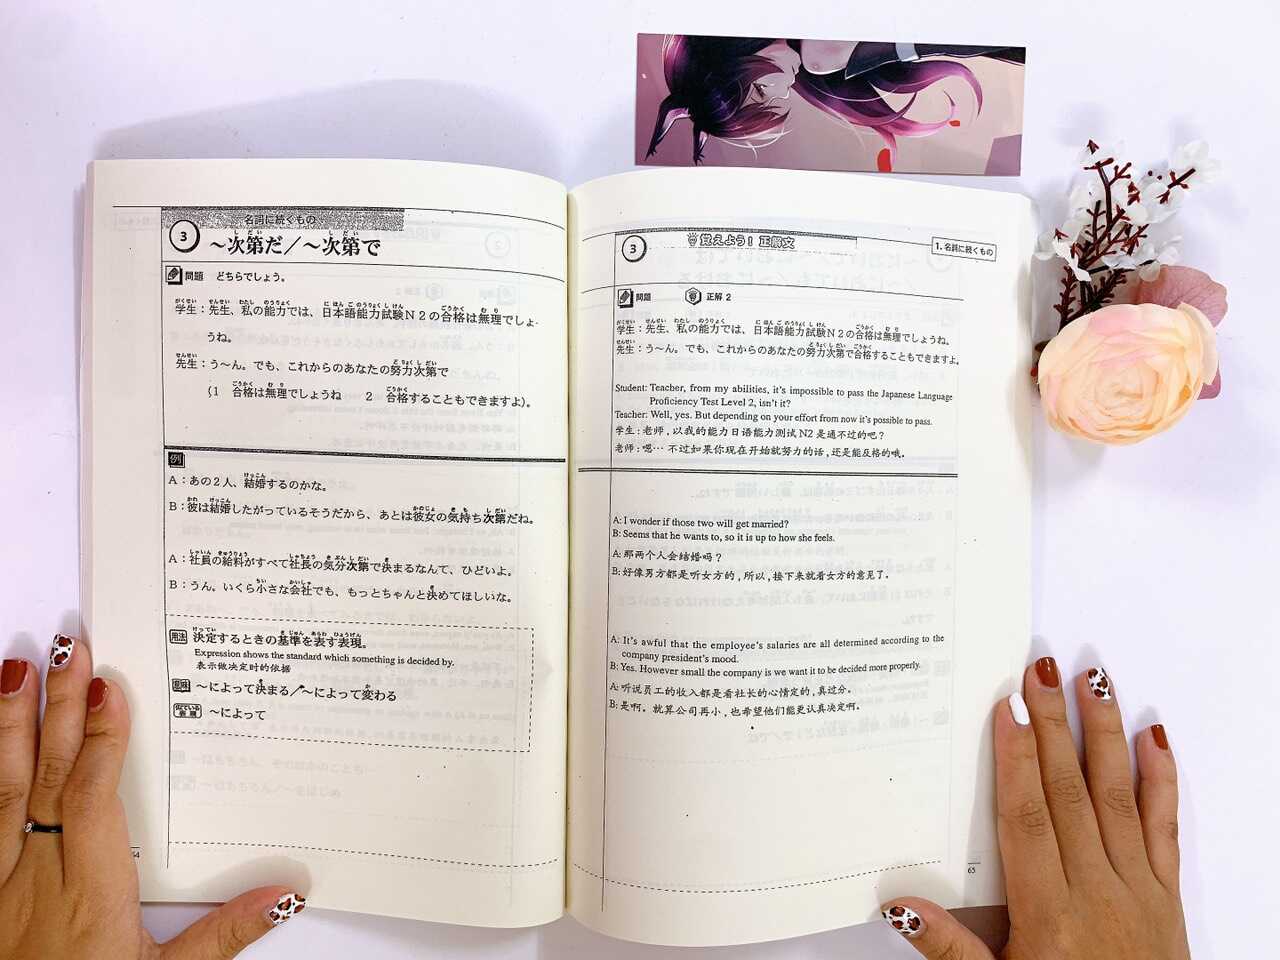 名詞に続くもの
3 ～次第だ／～次第で
問題 どちらでしょう。
学生：先生、私の能力では、日本語能力試験Ｎ２の合格は無理でしょ
うね。
先生：う～ん。でも、これからのあなたの努力次第で
（1 合格は無理でしょうね 2 合格することもできますよ）。
例
A：あの２人、結婚するのかな。
B：彼は結婚したがっているそうだから、あとは彼女の気持ち次第だね。
A：社員の給料がすべて社長の気分次第で決まるなんて、ひどいよ。
B：うん。いくら小さな会社でも、もっとちゃんと決めてほしいな。
用法 決定するときの基準を表す表現。
Expression shows the standard which something is decided by.
表示做决定时的依据
意味 ～によって決まる／～によって変わる
似ている表現 ～によって
64
3 覚えよう！正解文
1. 名詞に続くもの
問題 正解 2
学生：先生、私の能力では、日本語能力試験Ｎ２の合格は無理でしょうね。
先生：う～ん。でも、これからのあなたの努力次第で合格することもできますよ。
Student: Teacher, from my abilities, it's impossible to pass the Japanese Language
Proficiency Test Level 2, isn't it?
Teacher: Well, yes. But depending on your effort from now it's possible to pass.
学生：老师，以我的能力日语能力测试 N2 是通不过的吧？
老师：嗯… 不过如果你现在开始就努力的话，还是能及格的哦。
A: I wonder if those two will get married?
B: Seems that he wants to, so it is up to how she feels.
A: 那两个人会结婚吗？
B: 好像男方都是听女方的，所以，接下来就看女方的意见了。
A: It's awful that the employee's salaries are all determined according to the
company president's mood.
B: Yes. However small the company is we want it to be decided more properly.
A: 听说员工的收入都是看社长的心情定的，真过分。
B: 是啊。就算公司再小，也希望他们能更认真决定啊。
65